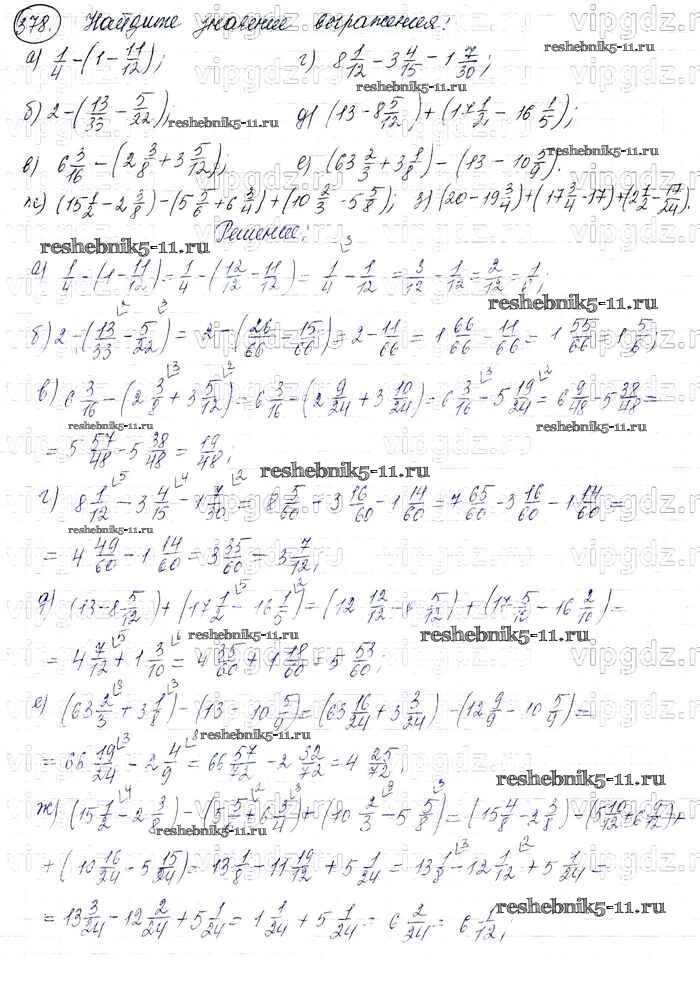 378. Найдите значение выражения:
а) 1/4 - (1 - 11/12); г) 8 1/12 - 3 4/15 - 1 7/30;
б) 2 - (13/33 - 5/22); д) (13 - 8 5/12) + (17 1/2 - 16 1/5);
в) 6 3/16 - (2 3/8 + 3 5/12); е) (63 2/3 + 3 1/8) - (13 - 10 5/9).
ж) (15 1/2 - 2 3/8) - (5 5/6 + 6 3/4) + (10 2/3 - 5 5/8); з) (20 - 19 3/4) + (17 3/4 - 17) + (2 1/2 - 17/24).
Решение:
а) 1/4 - (1 - 11/12) = 1/4 - (12/12 - 11/12) = 1/4 - 1/12 = 3/12 - 1/12 = 2/12 = 1/6;
б) 2 - (13/33 - 5/22) = 2 - (26/66 - 15/66) = 2 - 11/66 = 1 66/66 - 11/66 = 1 55/66 = 1 5/6;
в) 6 3/16 - (2 3/8 + 3 5/12) = 6 3/16 - (2 9/24 + 3 10/24) = 6 3/16 - 5 19/24 = 6 9/48 - 5 38/48 =
= 5 57/48 - 5 38/48 = 19/48;
г) 8 1/12 - 3 4/15 - 1 7/30 = 8 5/60 + 3 16/60 - 1 14/60 = 7 65/60 - 3 16/60 - 1 14/60 =
= 4 49/60 - 1 14/60 = 3 35/60 = 3 7/12;
д) (13 - 8 5/12) + (17 1/2 - 16 1/5) = (12 12/12 - 8 5/12) + (17 5/10 - 16 2/10) =
= 4 7/12 + 1 3/10 = 4 35/60 + 1 18/60 = 5 53/60;
е) (63 2/3 + 3 1/8) - (13 - 10 5/9) = (63 16/24 + 3 3/24) - (12 9/9 - 10 5/9) =
= 66 19/24 - 2 4/9 = 66 57/72 - 2 32/72 = 4 25/72;
ж) (15 1/2 - 2 3/8) - (5 5/6 + 6 3/4) + (10 2/3 - 5 5/8) = (15 4/8 - 2 3/8) - (5 10/12 + 6 9/12) +
+ (10 16/24 - 5 15/24) = 13 1/8 - 11 19/12 + 5 1/24 = 13 1/8 - 12 1/12 + 5 1/24 =
= 13 3/24 - 12 2/24 + 5 1/24 = 1 1/24 + 5 1/24 = 6 2/24 = 6 1/12;
reshebnik5-11.ru
vipgdz.ru